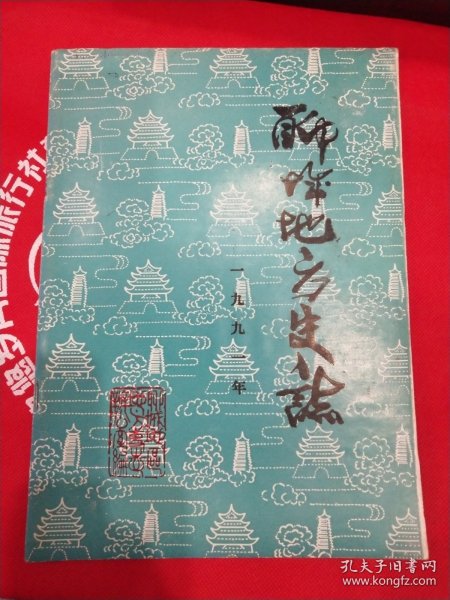 聊城地方史志
一九九一年
国际旅行社
孔夫子旧书网
www.kongfz.com